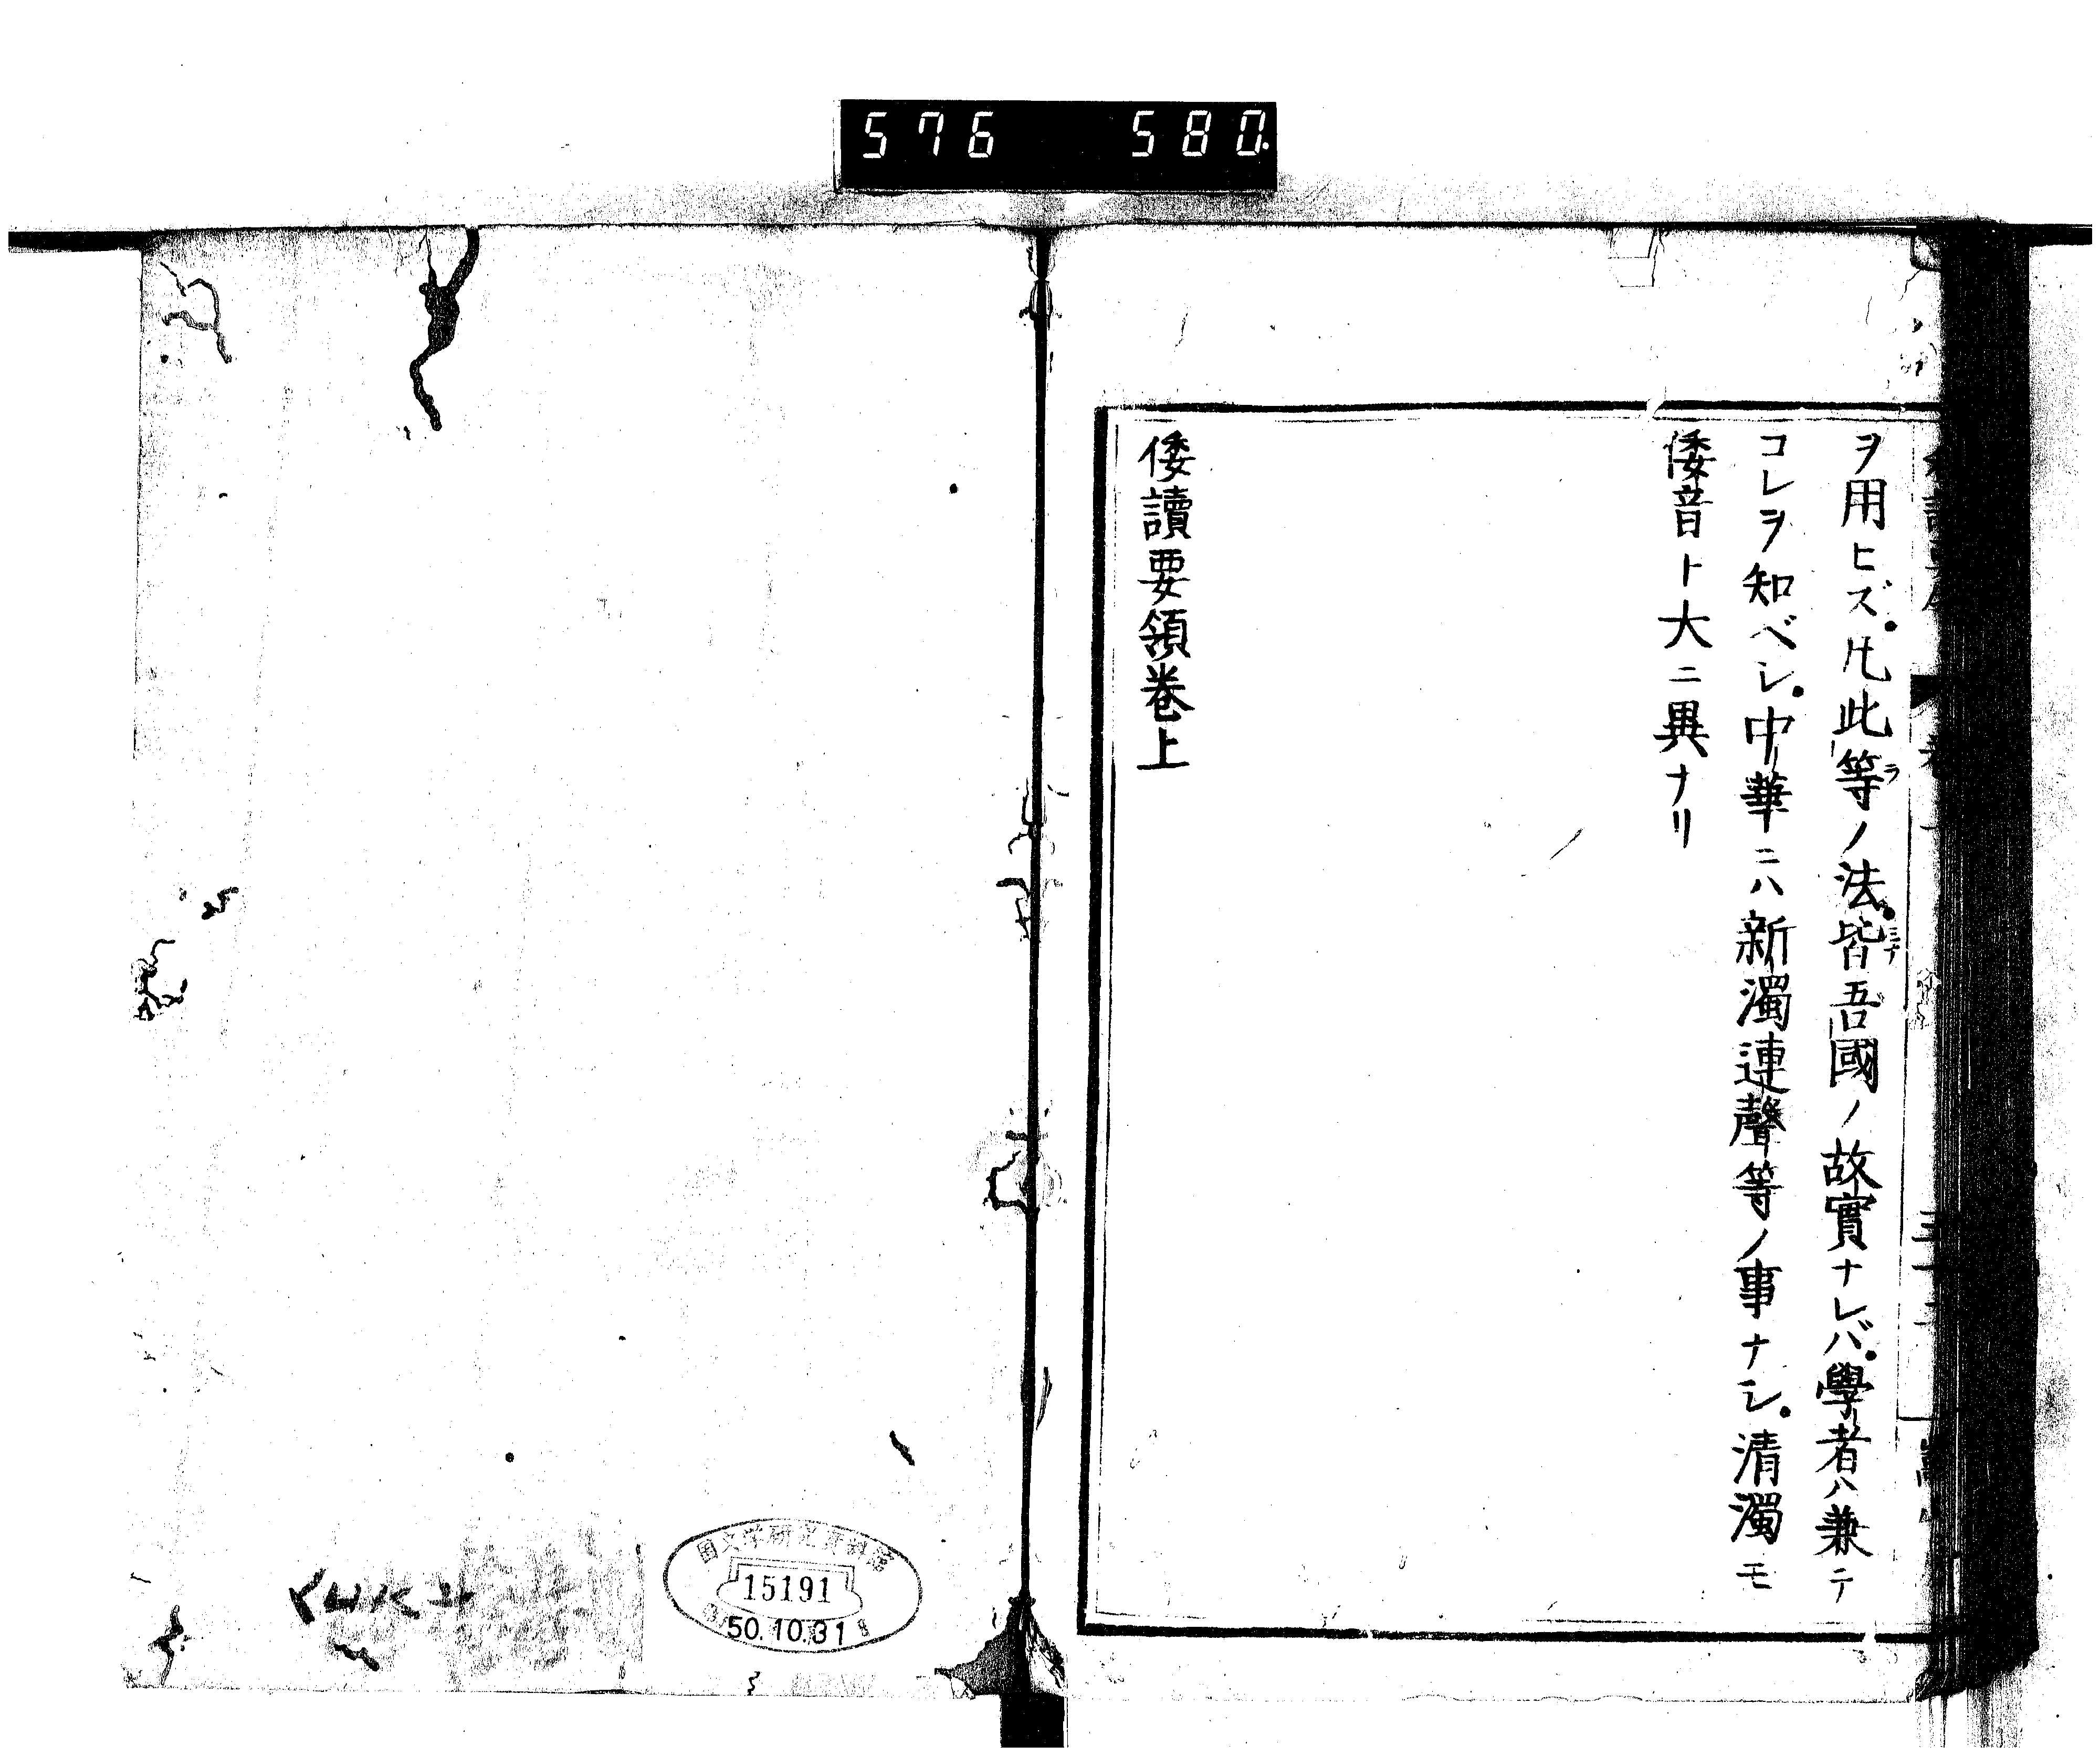 576 580
ヲ用ヒズ。凡此等ラノ法。皆ミナ吾國ノ故實ナレバ。學者ハ兼テ
コレヲ知ベシ。中華ニハ新濁連聲等ノ事ナシ。清濁モ
倭音ト大ニ異ナリ
倭讀要領卷上
国文学研究資料館
15191
50.10.31